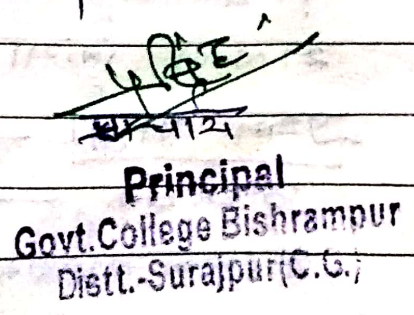 प्राचार्य
Principal
Govt.College Bishrampur
Distt.-Surajpur(C.G.)